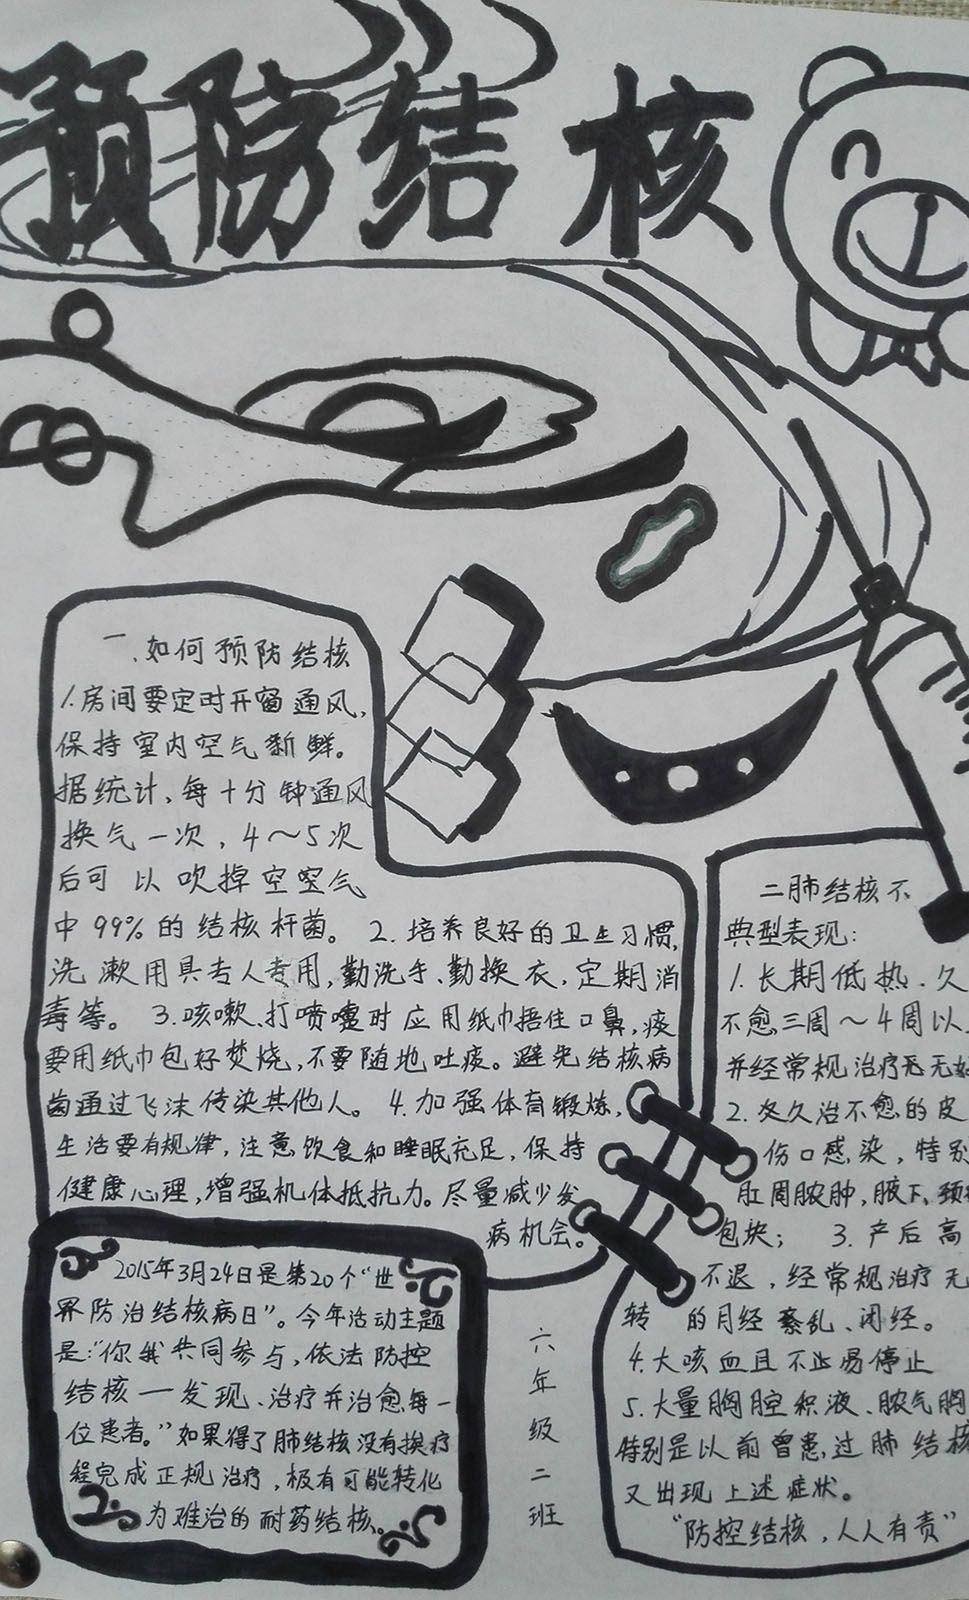 预防结核
一、如何预防结核
1.房间要定时开窗通风,
保持室内空气新鲜。
据统计、每十分钟通风
换气一次，4～5次
后可以吹掉空空气
中99%的结核杆菌。2.培养良好的卫生习惯,
洗漱用具专人专用,勤洗手、勤换衣,定期消
毒等。3.咳嗽、打喷嚏时应用纸巾捂住口鼻,痰
要用纸巾包好焚烧,不要随地吐痰。避免结核病
菌通过飞沫传染其他人。4.加强体育锻炼,
生活要有规律,注意饮食和睡眠充足,保持
健康心理,增强机体抵抗力。尽量减少发
病机会。
2015年3月24日是第20个“世
界防治结核病日”。今年活动主题
是:“你我共同参与,依法防控
结核—发现、治疗并治愈每一
位患者。”如果得了肺结核没有按疗
程完成正规治疗,极有可能转化
为难治的耐药结核。
六年级二班
二肺结核不
典型表现:
1.长期低热、久
不愈三周～4周以
并经常规治疗无
2.久治不愈的皮
伤口感染,特别
肛周脓肿,腋下、颈
包块; 3.产后高
不退,经常规治疗无
转的月经紊乱、闭经。
4.大咳血且不易停止
5.大量胸腔积液、脓气胸
特别是以前曾患过肺结核
又出现上述症状。
“防控结核,人人有责”